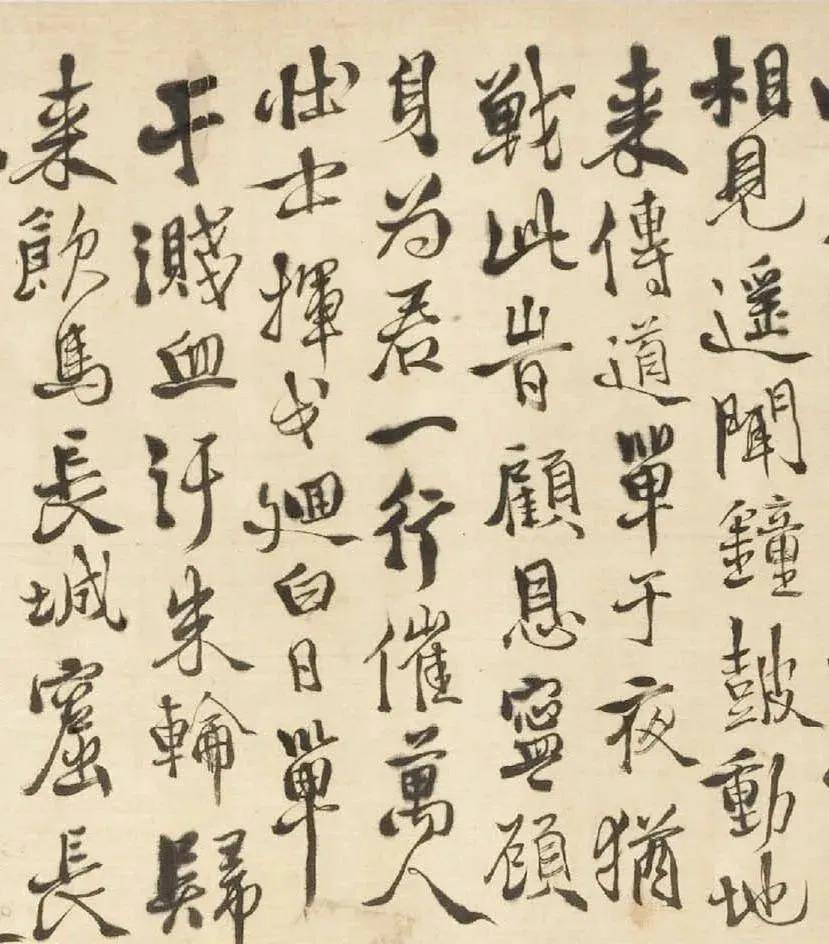 相見遥聞鐘鼓動地
来傳道單于夜猶
戰此旹顧恩寧顧
身為君一行催萬人
壮士揮戈廻白日單
于濺血汙朱輪歸
来飲馬長城窟長